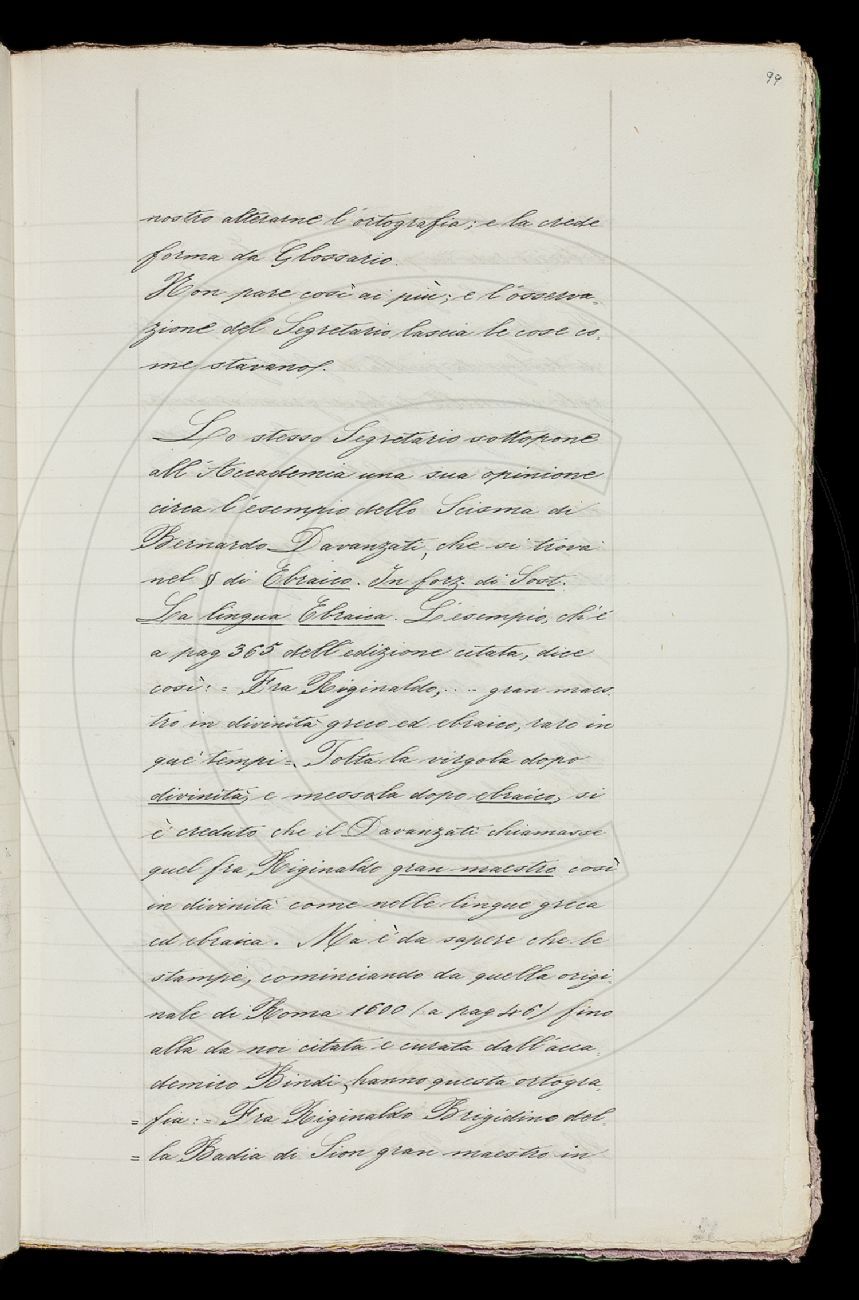 99
nostro alterarne l'ortografia; e la crede
forma da Glossario.
Non pare così ai più; e l'osserva-
zione del Segretario lascia le cose co-
me stavano.
Lo stesso Segretario sottopone
all'Accademia una sua opinione
circa l'esempio dello Scisma di
Bernardo Davanzati, che si trova
nel § di Ebraico. In forz. di Sost.
La lingua Ebraica. L'esempio, ch'è
a pag 365 dell'edizione citata, dice
così: = Fra Riginaldo, ... gran maes
tro in divinità greco ed ebraico, raro in
que' tempi =. Tolta la virgola dopo
divinità, e messala dopo ebraico, si
è creduto che il Davanzati chiamasse
quel fra Riginaldo gran maestro così
in divinità come nelle lingue greca
ed ebraica. Ma è da sapere che le
stampe, cominciando da quella origi-
nale di Roma 1600 (a pag 46) fino
alla da noi citata e curata dall'acca-
demico Bindi, hanno questa ortogra-
= fia: = Fra Riginaldo Brigidino del-
= la Badia di Sion gran maestro in